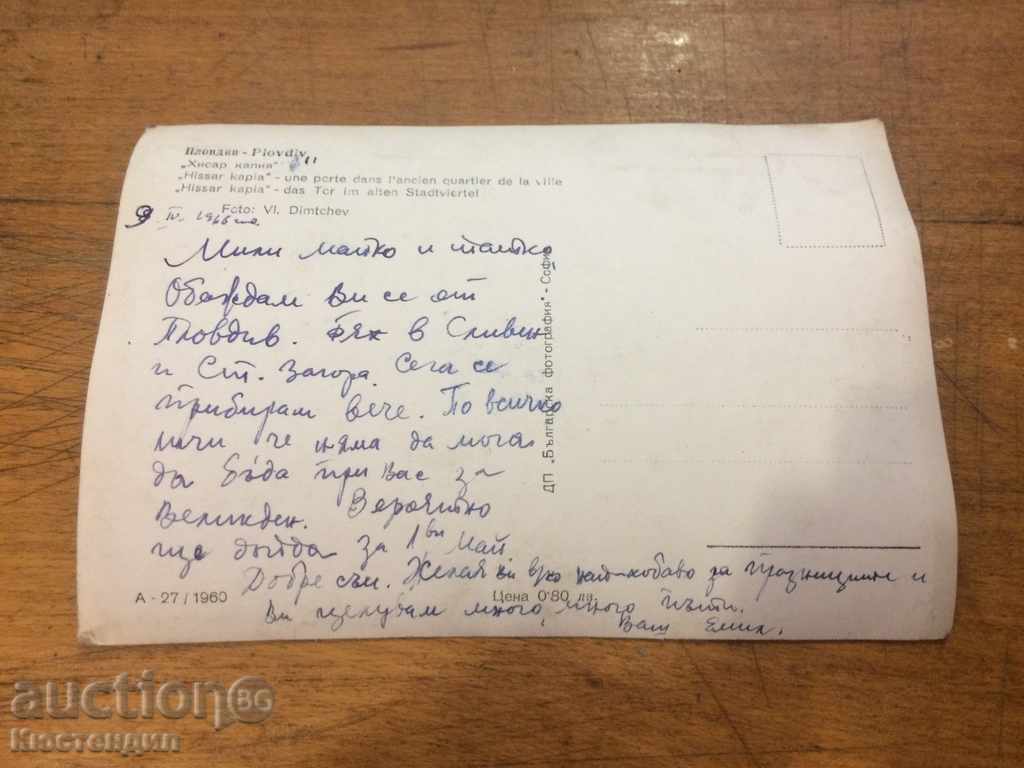 Пловдив - Plovdiv
„Хисар капия“
„Hissar kapia“ - une porte dans l'ancien quartier de la ville
„Hissar kapia“ - das Tor im alten Stadtviertel
Foto: Vl. Dimtchev
9 IV.
Мили майко и татко,
Обаждам Ви се от
Пловдив. Бях в Сливен
и Ст. Загора. Сега се
прибирам вече. По всичко
личи че няма да мога
да бъда при Вас за
Великден. Вероятно
ще дойда за 1ви Май.
Добре съм. Желая Ви най-хубаво за празниците и
Ви целувам много, много пъти.
Ваш Емил.
А - 27 / 1960
Цена 0'80 лв.
ДП „Българска фотография“ - София
auction BG
Кюстендил